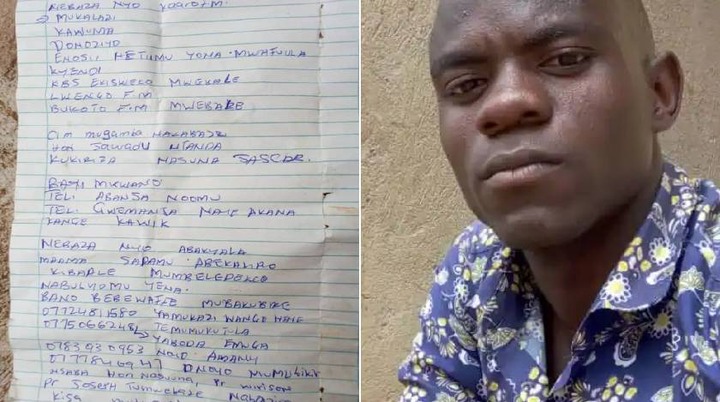 NEBAZA NYO
MUKALAZI
KAWUMA
DONOZIYO
ENOSII NETIIMU YONA MWAFUULA
KYENDI
KBS EKISWEKO MWEKALE
LWENGO F.M
BUKOTO F.M MWEBALE
CIM mugamba NAKABADE
HON SAWADU NTANDA
KUKIRIZA NASUNA
BASI MKWANO
TEL: ABANSA NOOMU
TEL: GWEMANJA NAYE AKANA
KANGE KAWIK
NEBAZA NYO ABAKYALA
MAAMA SADAMU ABEKAKIRO
KIBAALE MUMBELEDEKO
NABULYOMU YENA.
BANO BEBEWAFFE MUBAKUBIRE
0772481580 YAMUKAZI WANGE NAYE
0775066248 TEMUMUKUJULA
YABODA EMUGA
0783930953 NOYO AMANY
0777846947 ONOYO MUMUBIKIR
NSABA HON NASUNA, Pr wilison
Pr JOSESH Tumwebaze
KISA